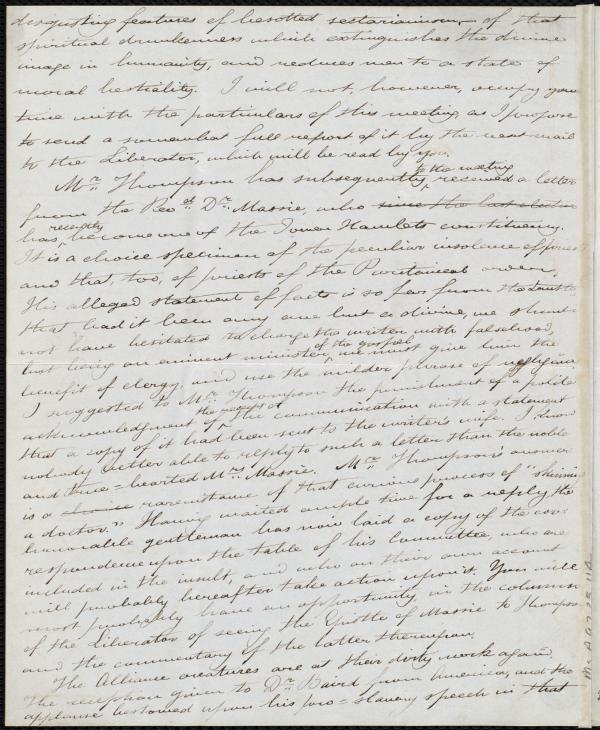 disgusting features of besotted sectarianism, – of that
spiritual drunkenness which extinguishes the divine
image in humanity, and reduces men to a state of
moral bestiality. I will not, however, occupy your
time with the particulars of this meeting, as I propose
to send a somewhat full report of it by the next mail
to the Liberator, which will be read by you.
to the meeting
Mr. Thompson has subsequently received a letter
from the Revd. Dr. Massie, who since the last election
recently
has become one of the Tower Hamlets constituency.
It is a choice specimen of the peculiar insolence of priests
and that, too, of priests of the Puritanical order.
His alleged statement of facts is so far from the truth
that had it been any one but a divine, we should
not have hesitated to charge the writer with falsehood,
of the gospel
but being an eminent minister, we must give him the
benefit of clergy, and use the milder phrase of
I suggested to Mr. Thompson the punishment of a polite
the receipt of
acknowledgment of the communication with a statement
that a copy of it had been sent to the writer's wife. I know
nobody better able to reply to such a letter than the noble
and true-hearted Mrs. Massie. Mr. Thompson's answer
is a rare instance of that curious process of "skinning
a doctor." Having waited ample time for a reply, the
honorable gentleman has now laid a copy of the cor-
respondence upon the table of his Committee, who are
included in the insult, and who on their own account
will probably hereafter take action upon it. You will
most probably have an opportunity in the columns
of the Liberator of seeing the Epistle of Massie to Thompson
and the commentary of the latter thereupon.
The Alliance creatures are at their dirty work again.
The reception given to Dr. Baird from America, and the
applause bestowed upon his pro-slavery speech in that